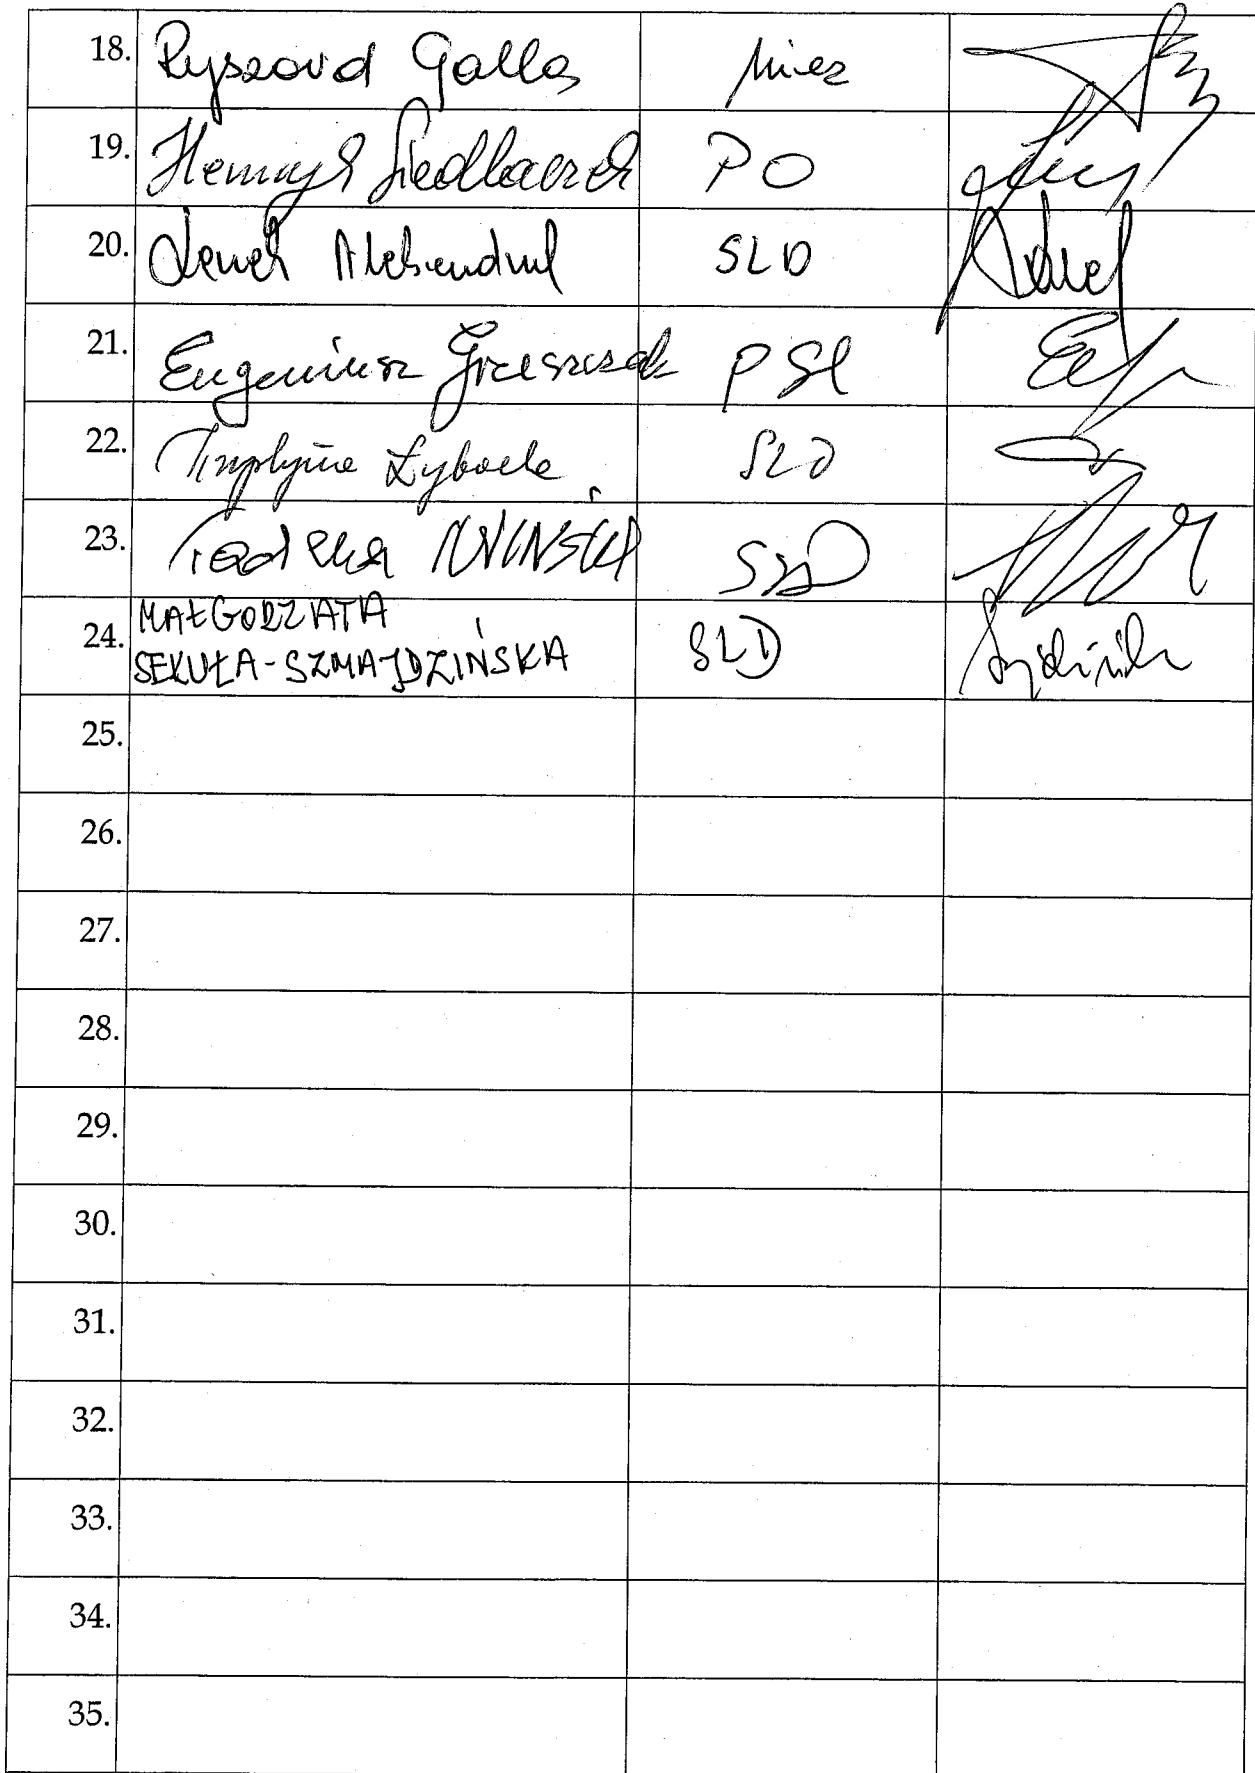 18. Ryszard Galla niez
19. Henryk Siedlaczek PO
20. Leszek Aleksandrzak SLD
21. Eugeniusz Grzeszczak PSL
22. Krystyna Łybacka SLD
23. Tadeusz IWIŃSKI SLD
24. MAŁGORZATA
SEKUŁA-SZMAJDZIŃSKA SLD
25.
26.
27.
28.
29.
30.
31.
32.
33.
34.
35.